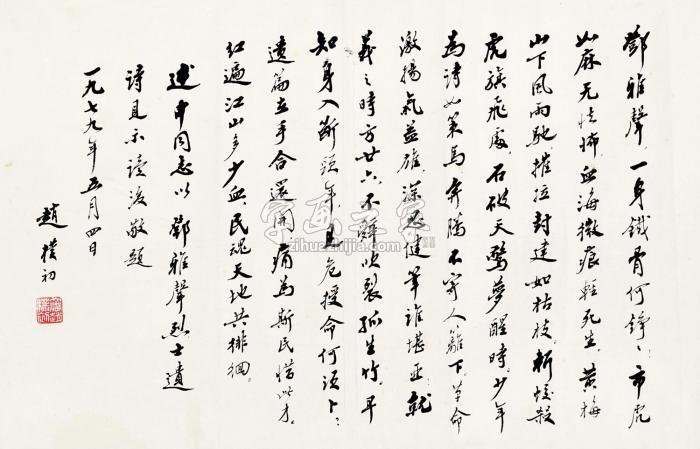 鄧雅聲,一身鐵骨何錚〻,市虎
如麻无怯怖,血海微痕輕死生。黄梅
山下風雨馳,摧拉封建如枯枝,斬蛟殺
虎旗飛處,石破天驚夢醒時。少年
為詩如策馬,奔騰不寄人籬下。革命
激揚氣益雄,深思健筆誰堪亞。就
義之時方廿六,不辭吹裂孤生竹。早
知身入斷頭年,見危授命何須卜。
遺篇在手合還開,痛為斯民惜此才。
红遍江山多少血,民魂天地共徘徊。
述申同志以鄧雅聲烈士遺
詩見示讀後敬題
一九七九年五月四日
趙樸初
zihuashijia.com